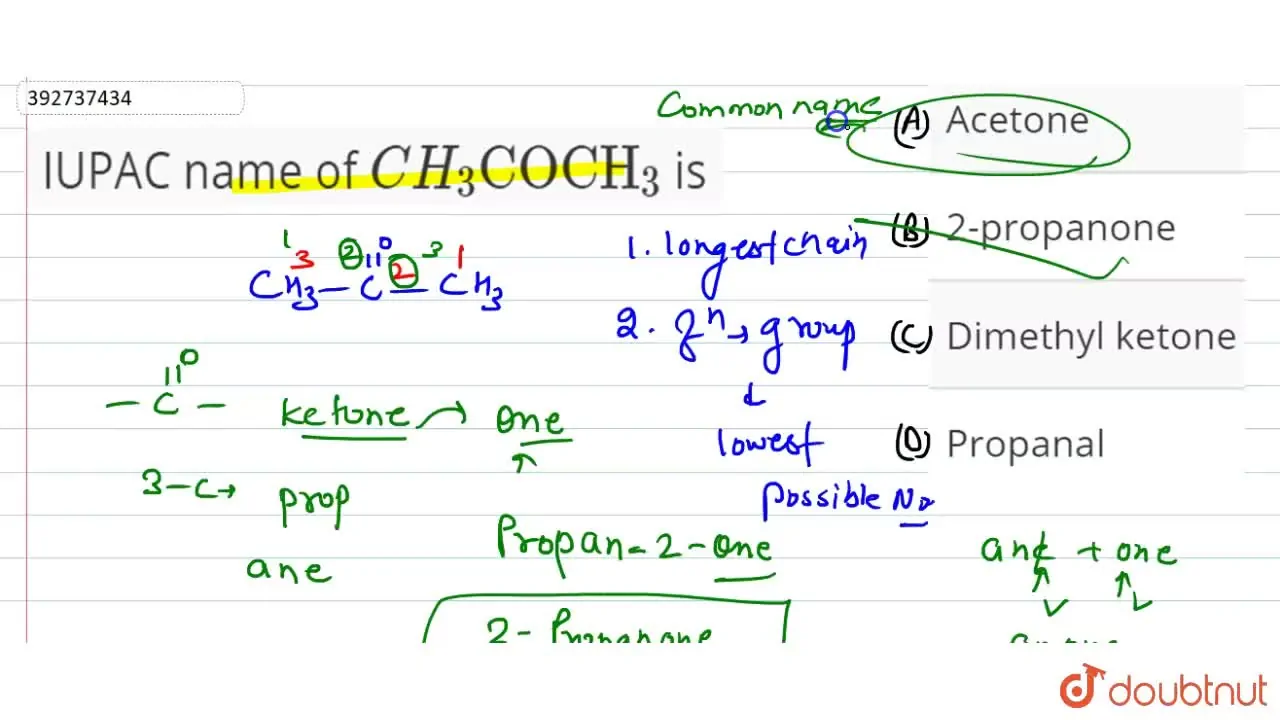 392737434
Common name
(A) Acetone
IUPAC name of CH₃COCH₃ is
(B) 2-propanone
1 3 2 O 2 3 1
CH₃–C–CH₃
1. longest chain
2. fⁿ → group
(C) Dimethyl ketone
O
–C–
ketone → one
lowest
(D) Propanal
3-C→ prop
possible No
Propan-2-one
ane + one
ane
2-Propanone
doubtnut